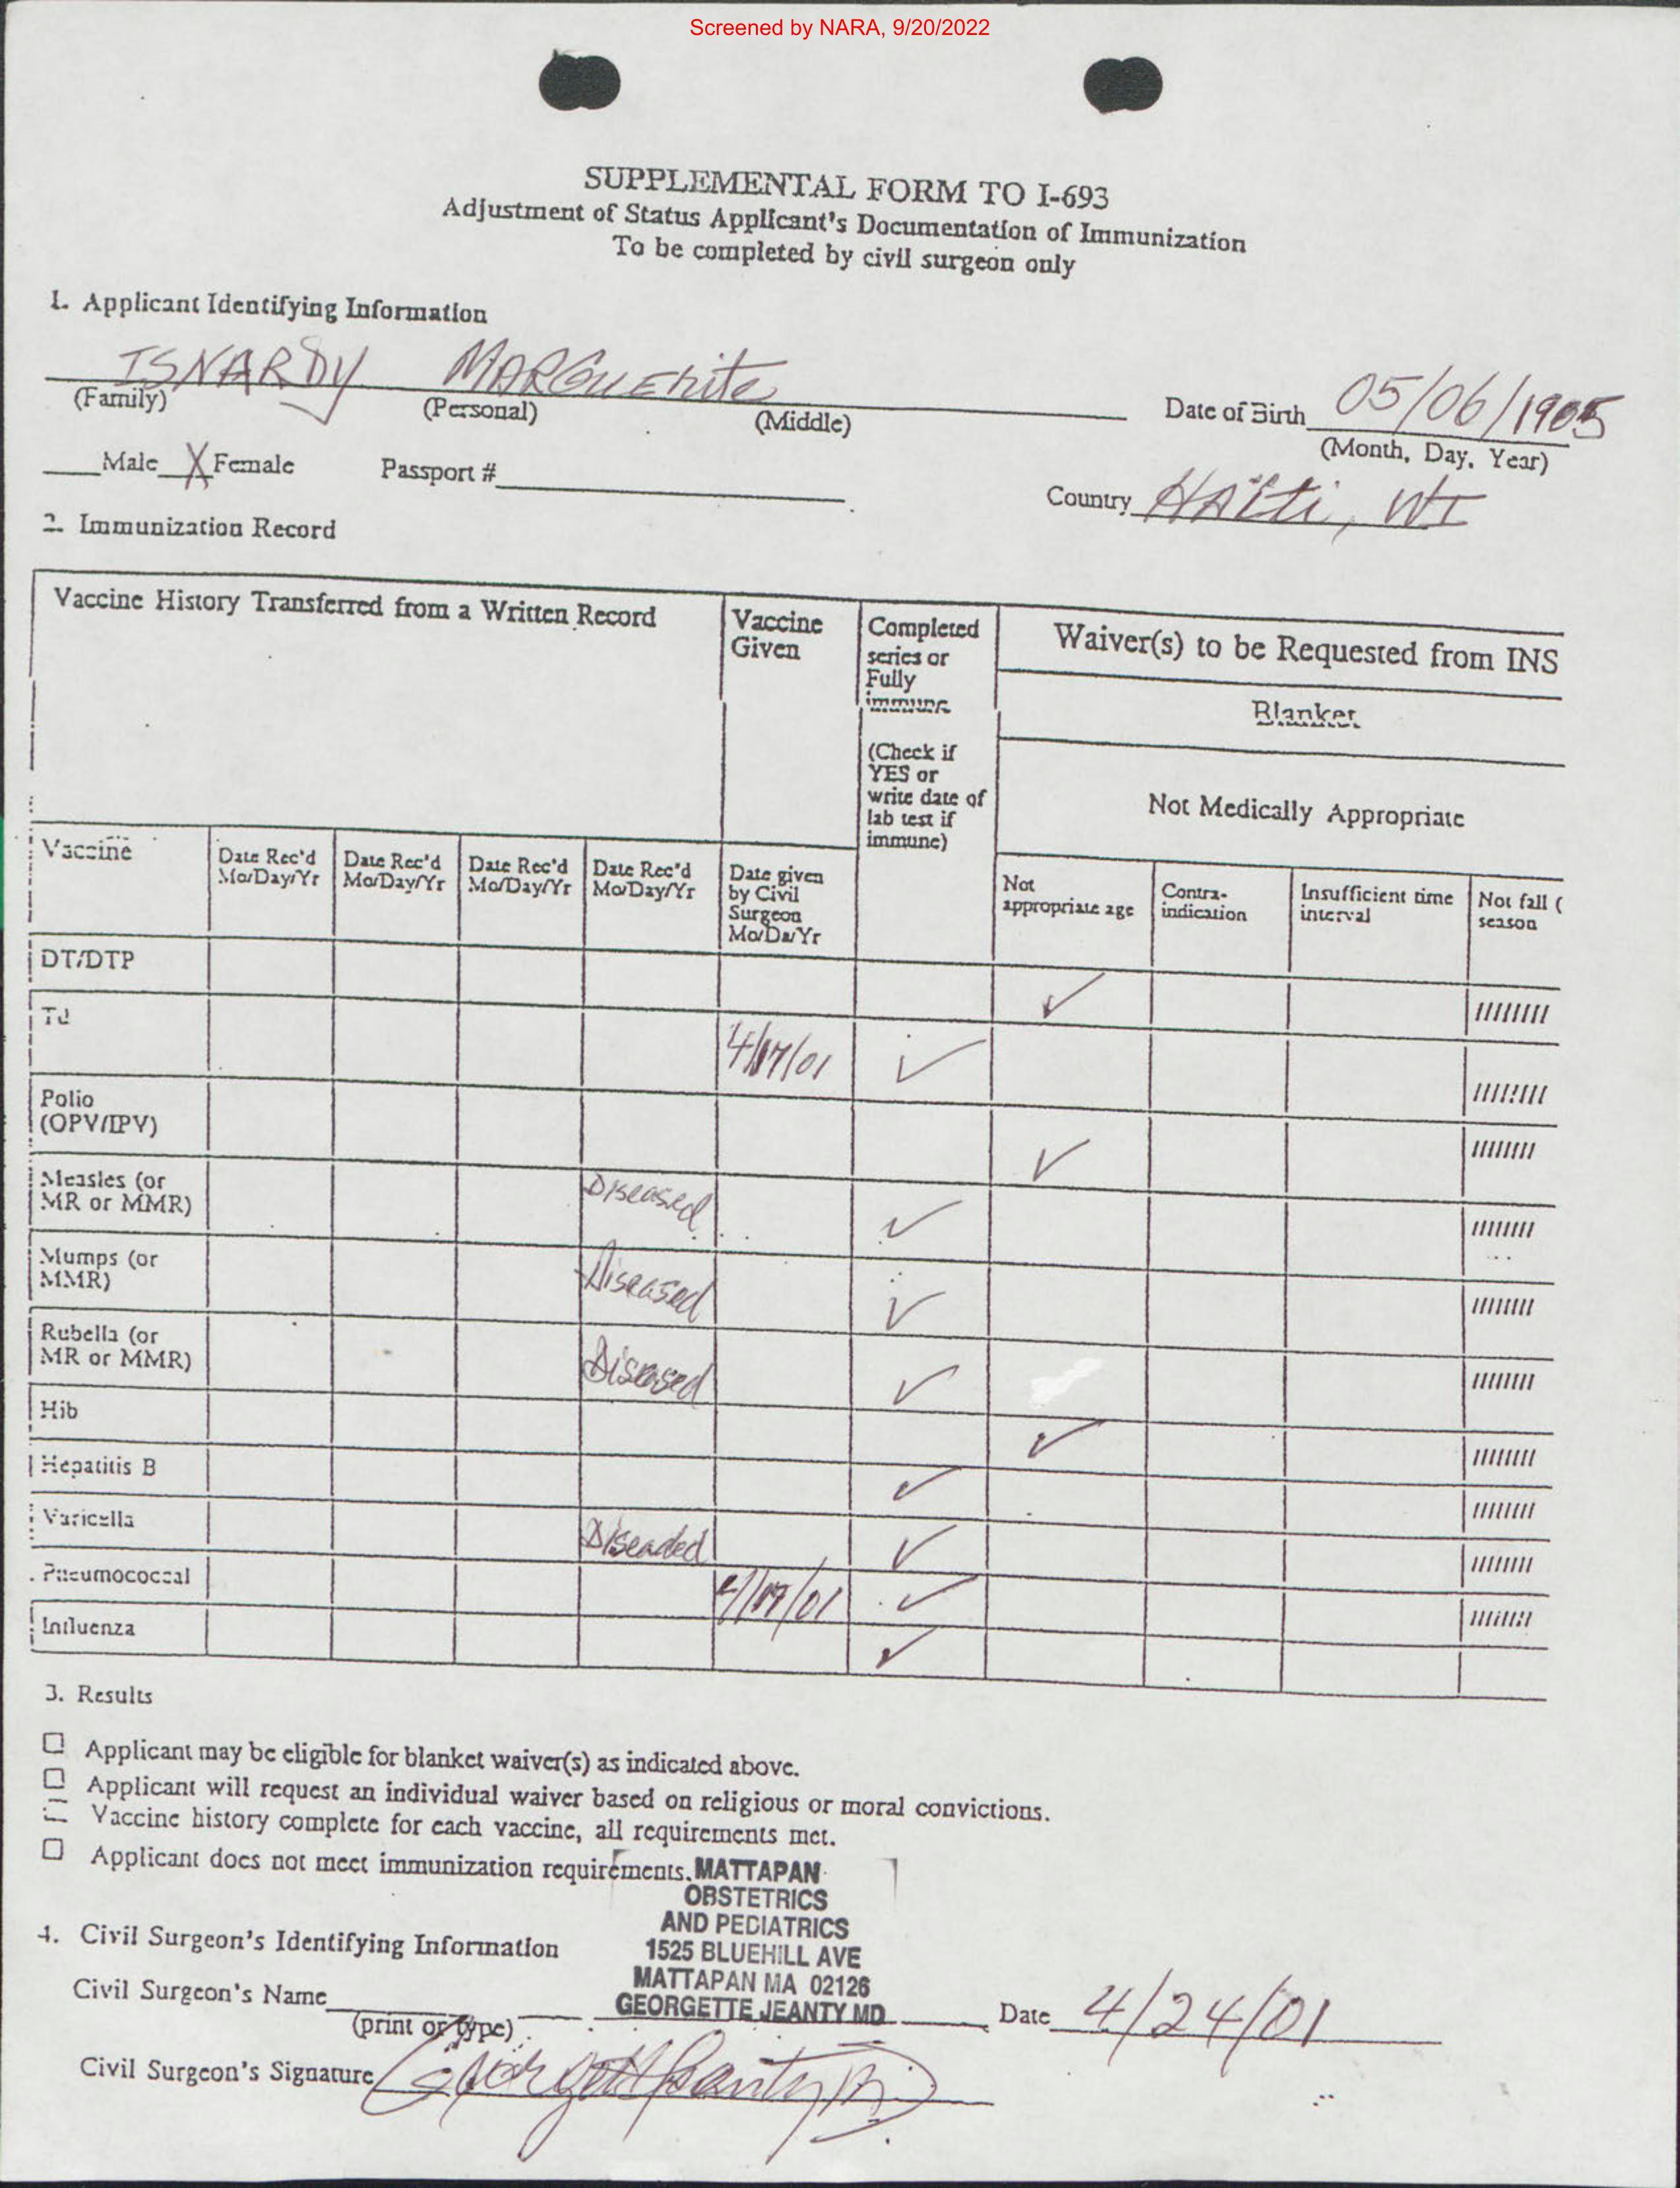 Screened by NARA, 9/20/2022
SUPPLEMENTAL FORM TO I-693
Adjustment of Status Applicant's Documentation of Immunization
To be completed by civil surgeon only
1. Applicant Identifying Information
ISNARDY MARGUErite
(Family) (Personal) (Middle)
Date of Birth 05/06/1905
(Month, Day, Year)
Male X Female Passport #
Country HAïti, WI
2. Immunization Record
Vaccine History Transferred from a Written Record
Vaccine Given
Completed series or Fully immune
(Check if YES or write date of lab test if immune)
Waiver(s) to be Requested from INS
Blanket
Not Medically Appropriate
Vaccine
Date Rec'd Mo/Day/Yr
Date Rec'd Mo/Day/Yr
Date Rec'd Mo/Day/Yr
Date Rec'd Mo/Day/Yr
Date given by Civil Surgeon Mo/Da/Yr
Not appropriate age
Contra-indication
Insufficient time interval
Not fall (
season
DT/DTP ✓ ////////
Td 4/17/01 ✓ ////////
Polio (OPV/IPV) ✓ ////////
Measles (or MR or MMR) Diseased ✓ ////////
Mumps (or MMR) Diseased ✓ ////////
Rubella (or MR or MMR) Diseased ✓ ////////
Hib ✓ ////////
Hepatitis B ✓ ////////
Varicella Diseaded ✓ ////////
Pneumococcal 4/17/01 ✓ ////////
Influenza ✓
3. Results
☐ Applicant may be eligible for blanket waiver(s) as indicated above.
☐ Applicant will request an individual waiver based on religious or moral convictions.
☐ Vaccine history complete for each vaccine, all requirements met.
☐ Applicant does not meet immunization requirements.
MATTAPAN
OBSTETRICS
AND PEDIATRICS
1525 BLUEHILL AVE
MATTAPAN MA 02126
GEORGETTE JEANTY MD
4. Civil Surgeon's Identifying Information
Civil Surgeon's Name
(print or type)
Date 4/24/01
Civil Surgeon's Signature Georgette Jeanty MD